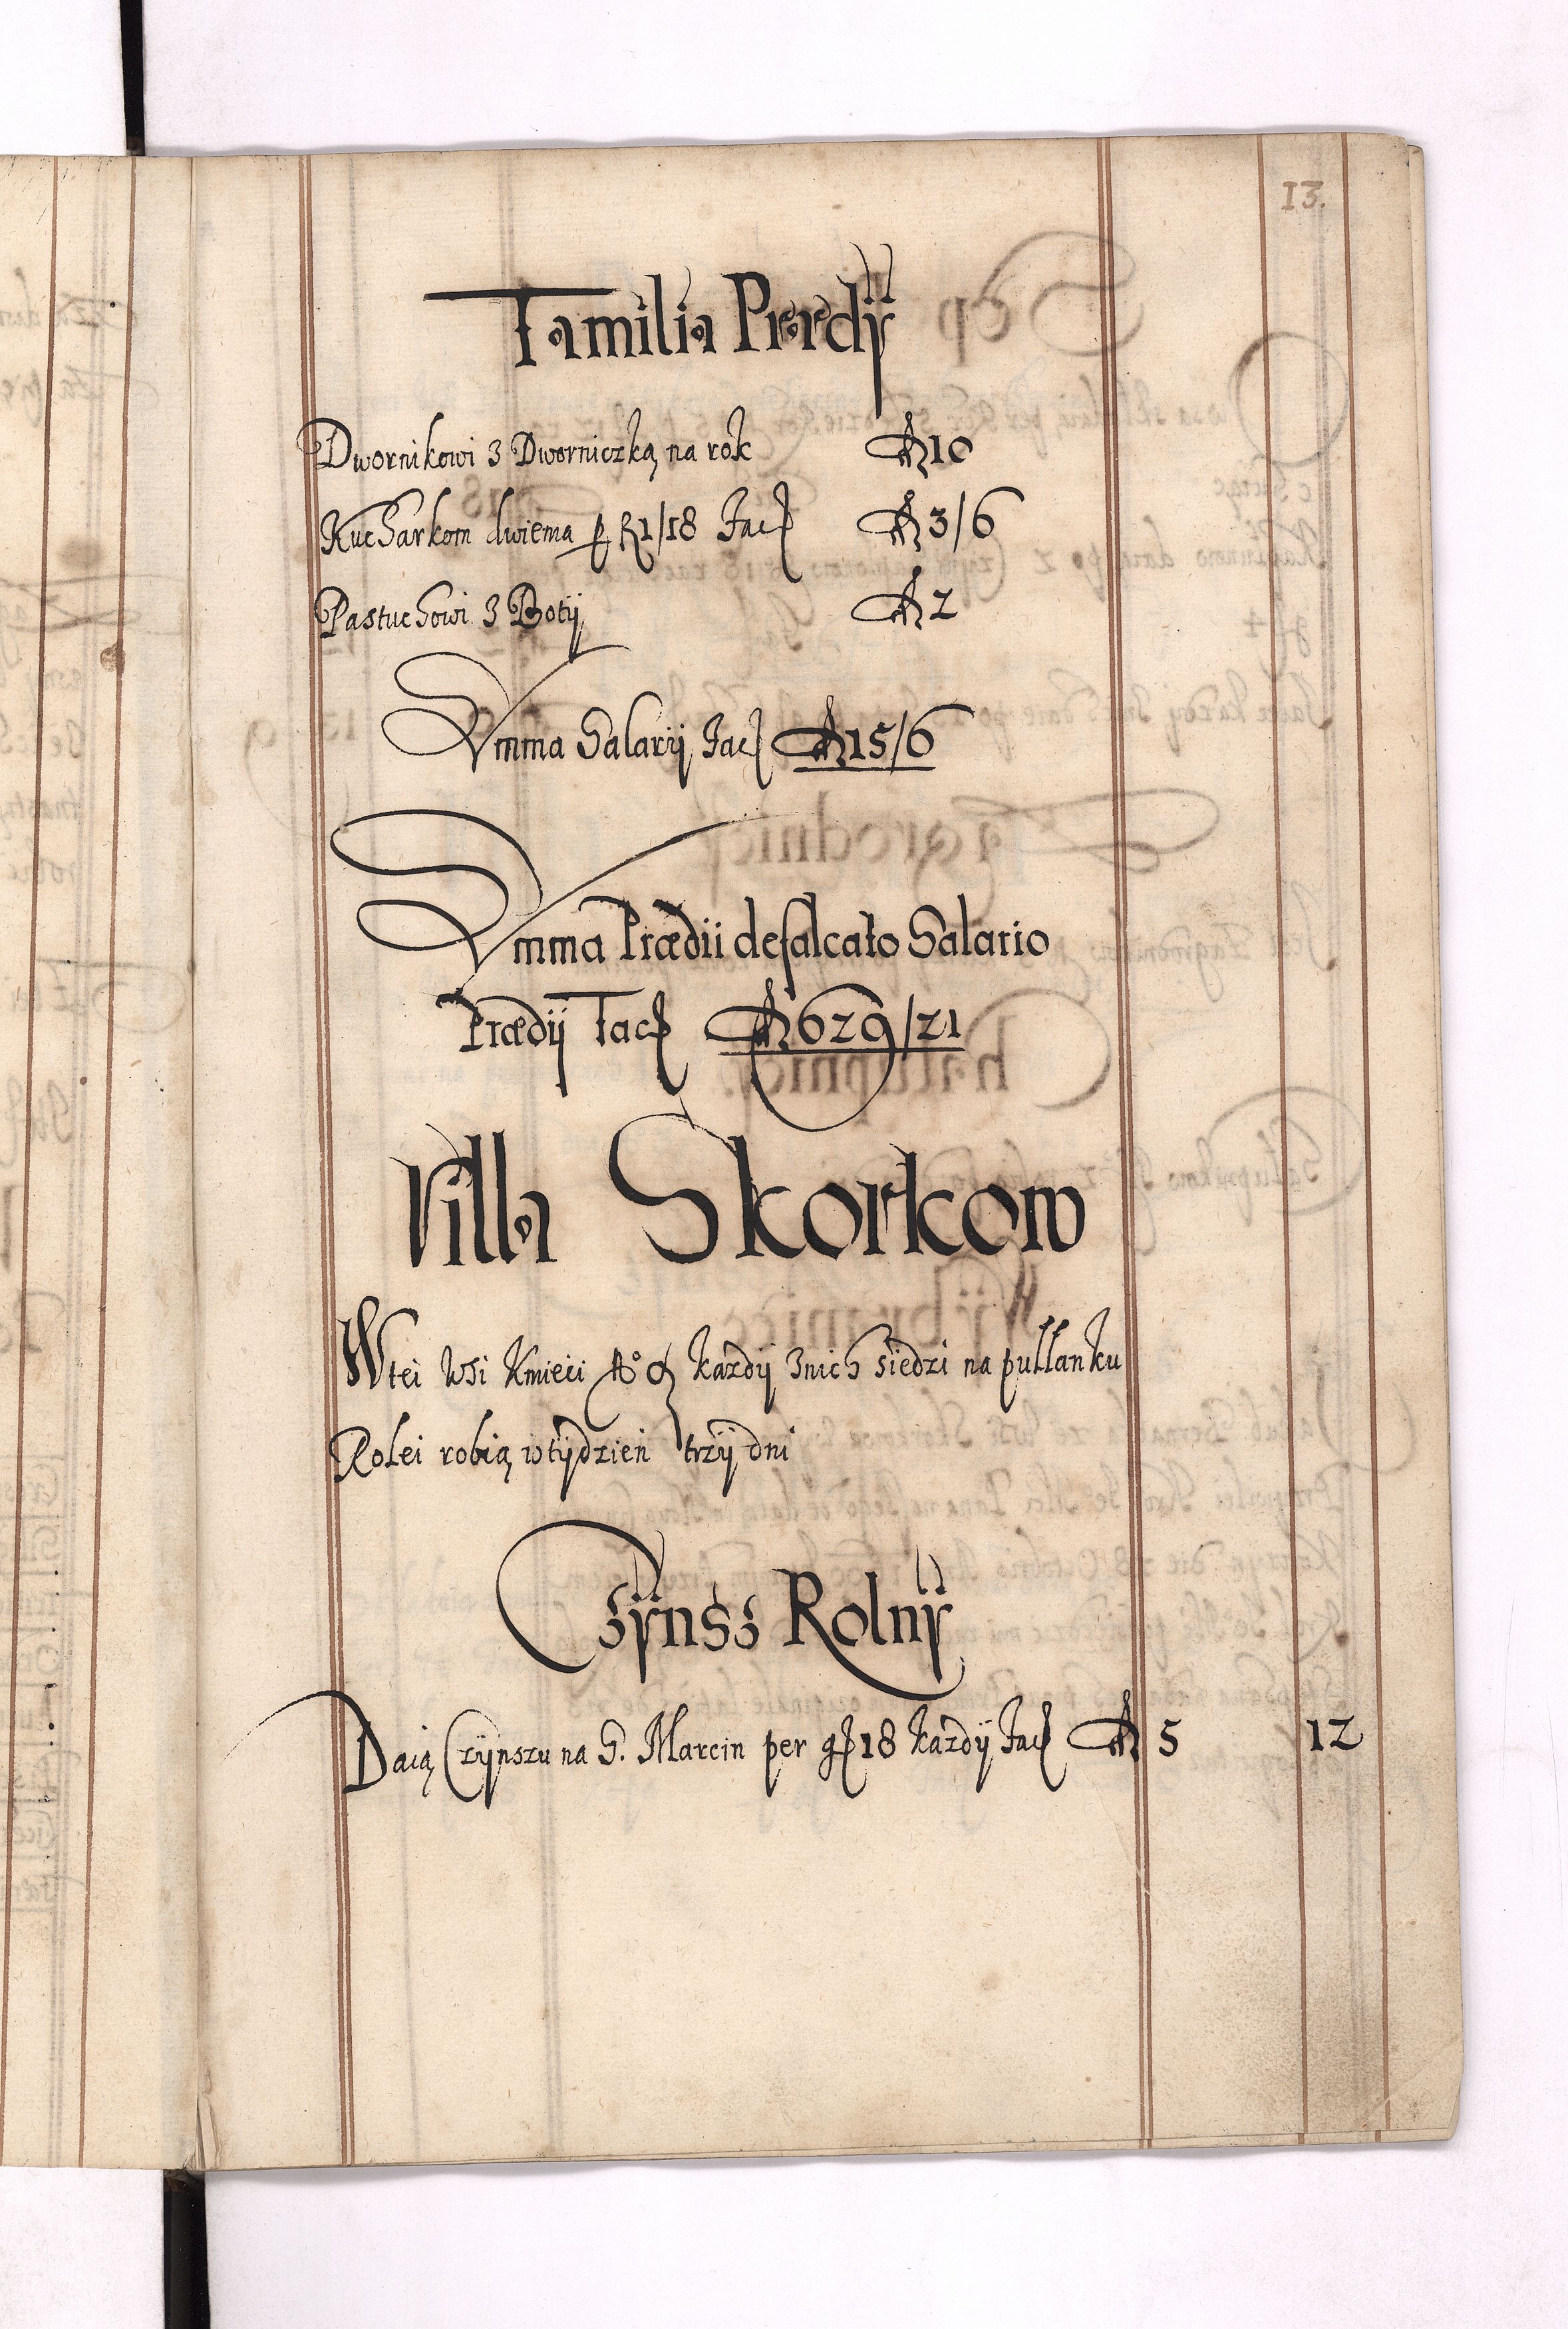 13.
Familia Prædÿ
Dwornikowi 3 Dworniczką na rok fl 10
Kucharkom dwiema p fl 1/18 Fac fl 3/6
Pastuchowi 3 Botÿ fl 2
Summa Salarÿ Fac fl 15/6
Summa Prædii defalcato Salario
Prædÿ Fac fl 629/21
Villa Skorkow
Wtei Wsi Kmieci No 9 każdÿ 3nich siedzi na pułłanku
Rolei robią wtÿdzień trzÿ dni
Czÿnsz Rolnÿ
Daią Czÿnszu na S. Marcin per gr 18 każdÿ Fac fl 5 12